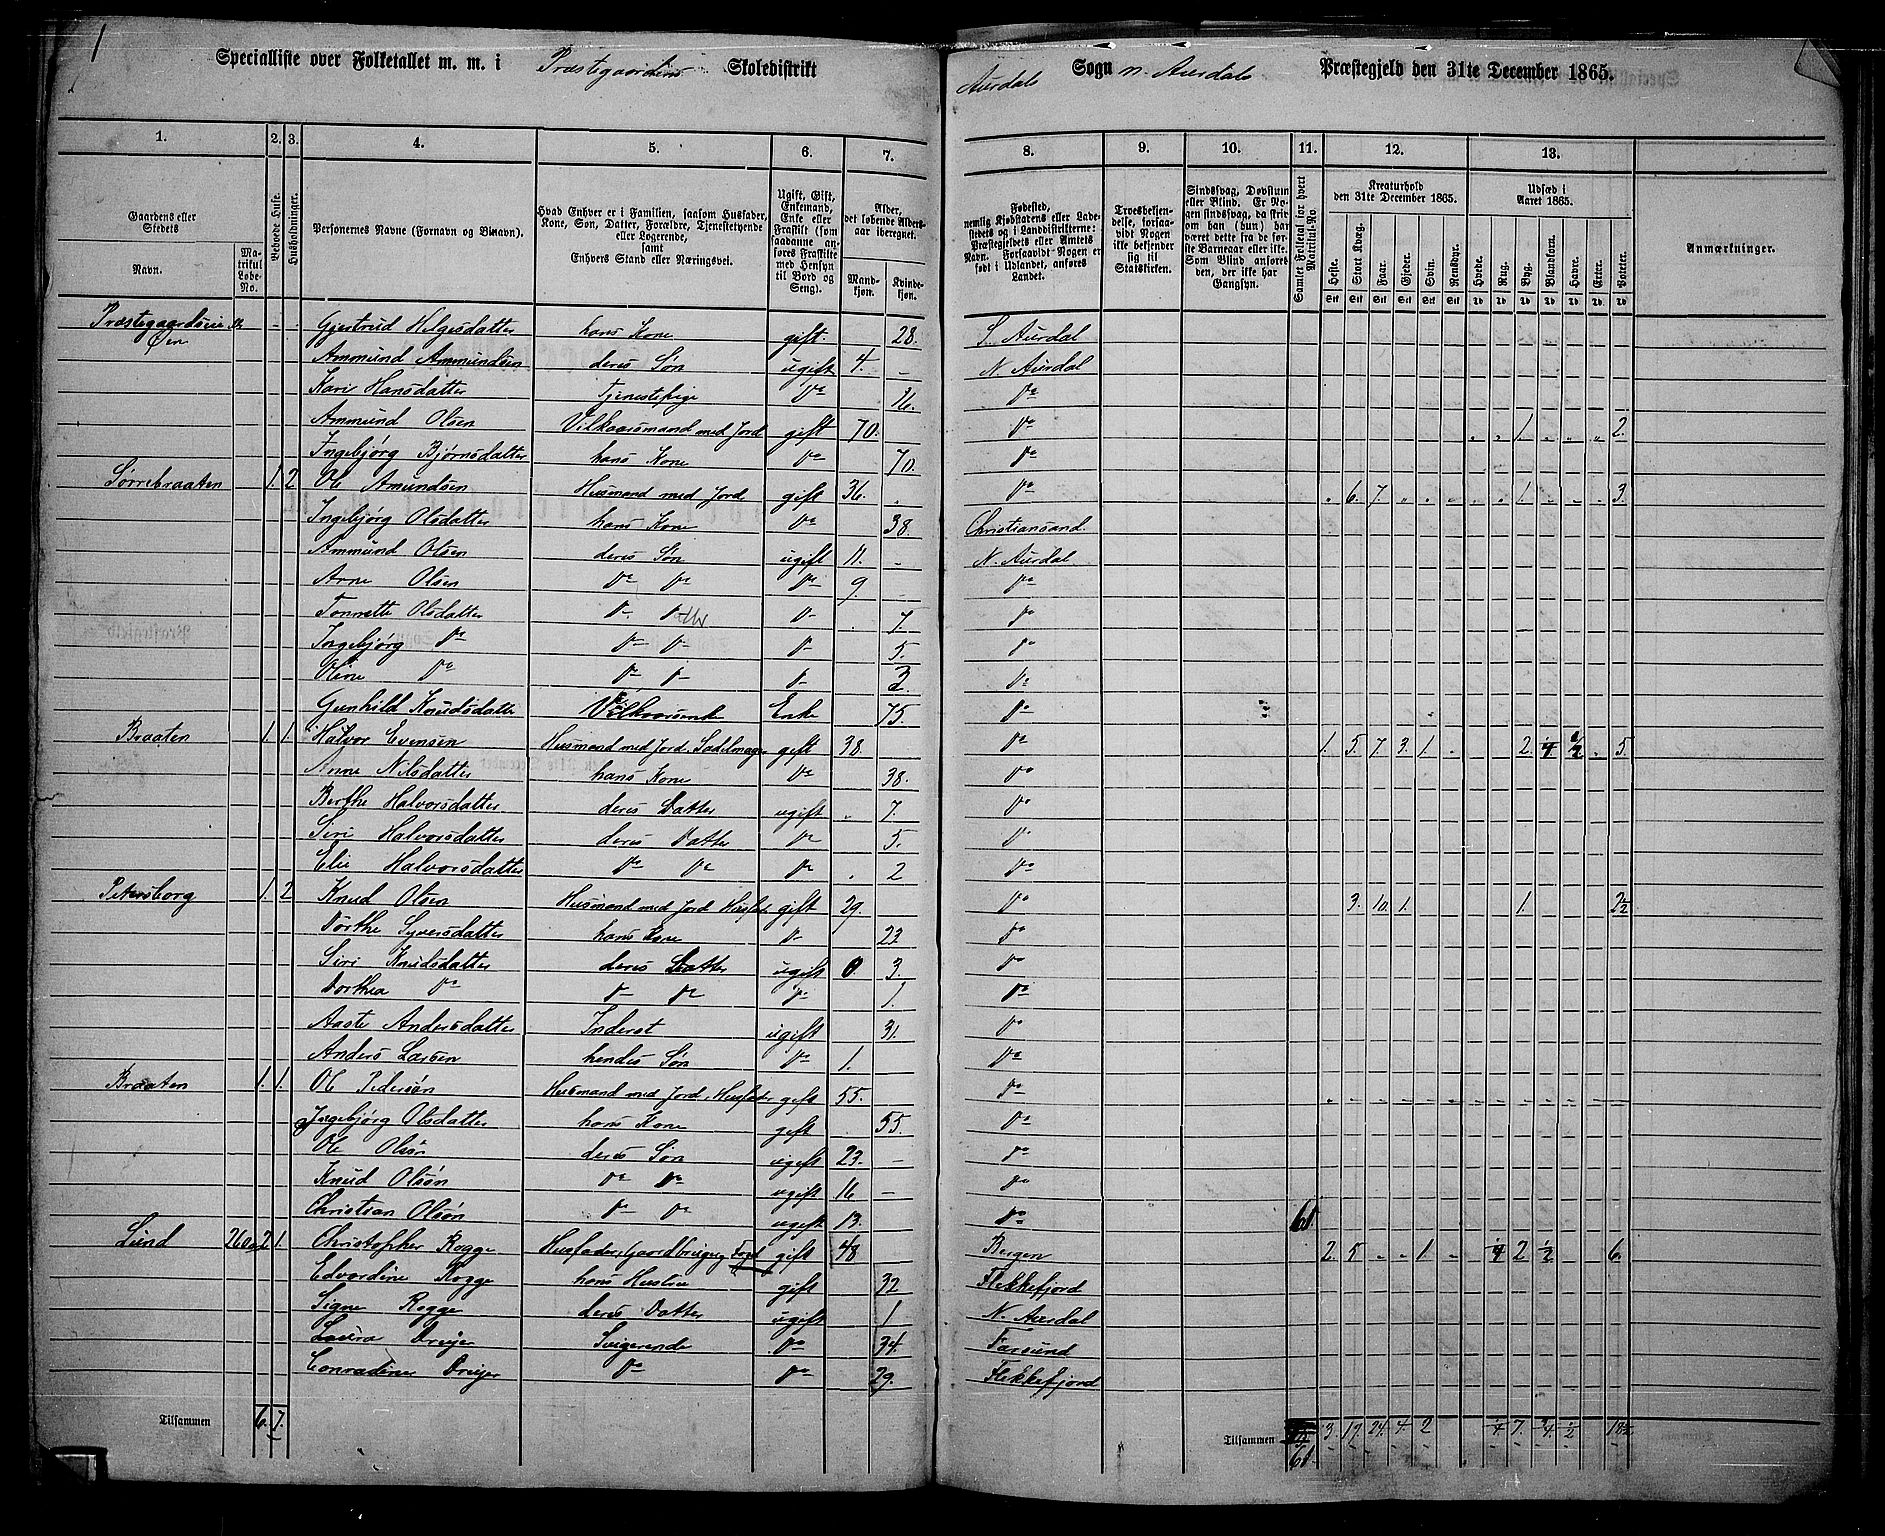 1
Specialliste over Folketallet m. m. i Præstegaardens Skoledistrikt Aurdals Sogn N. Aurdals Præstegjeld den 31te December 1865.
1. 2. 3. 4. 5. 6. 7. 8. 9. 10. 11. 12. 13.
Gaardens eller Stedets
Navn.
Matrikul Løbe-No.
Beboede Huse.
Husholdninger.
Personernes Navne (Fornavn og Binavn).
Hvad Enhver er i Familien, saasom Husfader, Kone, Søn, Datter, Forældre, Tjenestetyende eller Logerende, samt Enhvers Stand eller Næringsvei.
Ugift, Gift, Enkemand, Enke eller Fraskilt (som saadanne anføres Fraskilte med Hensyn til Bord og Seng).
Alder, det løbende Aldersaar iberegnet.
Mandkjøn.
Kvindekjøn.
Fødested, nemlig Kjøbstadens eller Ladestedets og i Landdistrikterne: Præstegjeldets eller Amtets Navn. Forsaavidt Nogen er født i Udlandet, anføres Landet.
Troesbekjendelse, forsaavidt Nogen ikke bekjender sig til Statskirken.
Sindssvag, Døvstum eller Blind. Er Nogen sindssvag, da skrives om han (hun) har været dette fra de første Barneaar eller ikke. Som Blind anføres den, der ikke har Gangsyn.
Samlet Folketal for hvert Matrikul-No.
Kreaturhold den 31te December 1865.
Heste. Stort Kvæg. Faar. Gjeder. Svin. Rensdyr.
Udsæd i Aaret 1865.
Hvede. Rug. Byg. Blandkorn. Havre. Erter. Poteter.
Anmærkninger.
Præstegaardseie Øen Gjertrud Helgesdatter hans Kone gift. 28. S. Aurdal
Ammund Ammundsen deres Søn ugift 4. N. Aurdal
Kari Hansdatter Tjenestepige Do 16. Do
Ammund Olsen Vilkaarsmand med Jord gift 70. Do 1. 2.
Ingebjørg Bjørnsdatter hans Kone Do 70. Do
Sørrebraaten 1. 2 Ole Amundsen Husmand med Jord gift 36. Do 6. 7. 1. 3.
Ingebjørg Olsdatter hans Kone Do 38. Christiansand.
Ammund Olsen deres Søn ugift 11. N. Aurdal
Arne Olsen Do Do Do 9. Do
Tonnette Olsdatter Do Do Do 7. Do
Ingebjørg Do Do Do Do 5. Do
Oline Do Do Do Do 3. Do
Gunhild Knudsdatter Vilkaarsenke Enke 75. Do
Braaten 1. 1. Halvor Evensen Husmand med Jord, Sadelmager gift 38. Do 1. 5. 7. 3. 1. 2. 1/4 1/2 5.
Anne Nilsdatter hans Kone Do 38. Do
Berthe Halvorsdatter deres Datter ugift 7. Do
Siri Halvorsdatter deres Datter Do 5. Do
Elie Halvorsdatter Do Do Do 2 Do
Petersborg 1. 2 Knud Olsen Husmand med Jord Husfader gift 29. Do 3. 10. 1. 1. 2½
Dorthe Syversdatter hans Kone Do 22 Do
Siri Knudsdatter deres Datter ugift 3. Do
Dorthea Do Do Do Do 1. Do
Aaste Andersdatter Inderst ugift 31. Do
Anders Larsen hendes Søn Do 1. Do
Braaten 1. 1. Ole Pedersøn Husmand med Jord, Husfader gift 55. Do
Ingebjørg Olsdatter hans Kone gift 55. Do
Ole Olsøn deres Søn ugift 23. Do
Knud Olsøn Do Do ugift 16 Do
Christian Olsøn Do Do ugift 13. Do 61.
Lund 260 2 1. Christopher Rogge Husfader, Gaardbruger, Fogd gift 48 Bergen 2. 5 1 1/4 2 1/2 6.
Edvardine Rogge hans Hustru gift 32 Flekkefjord
Signe Rogge deres Datter ugift 1 N. Aurdal
Laura Dreyer Svigerinde Do 34. Farsund
Conradine Dreyer Do Do 29. Flekkefjord
Tilsammen 6. 7. Tilsammen 61. 3. 19. 24. 4. 2 1/4 7. 3/4. 1/2 18½